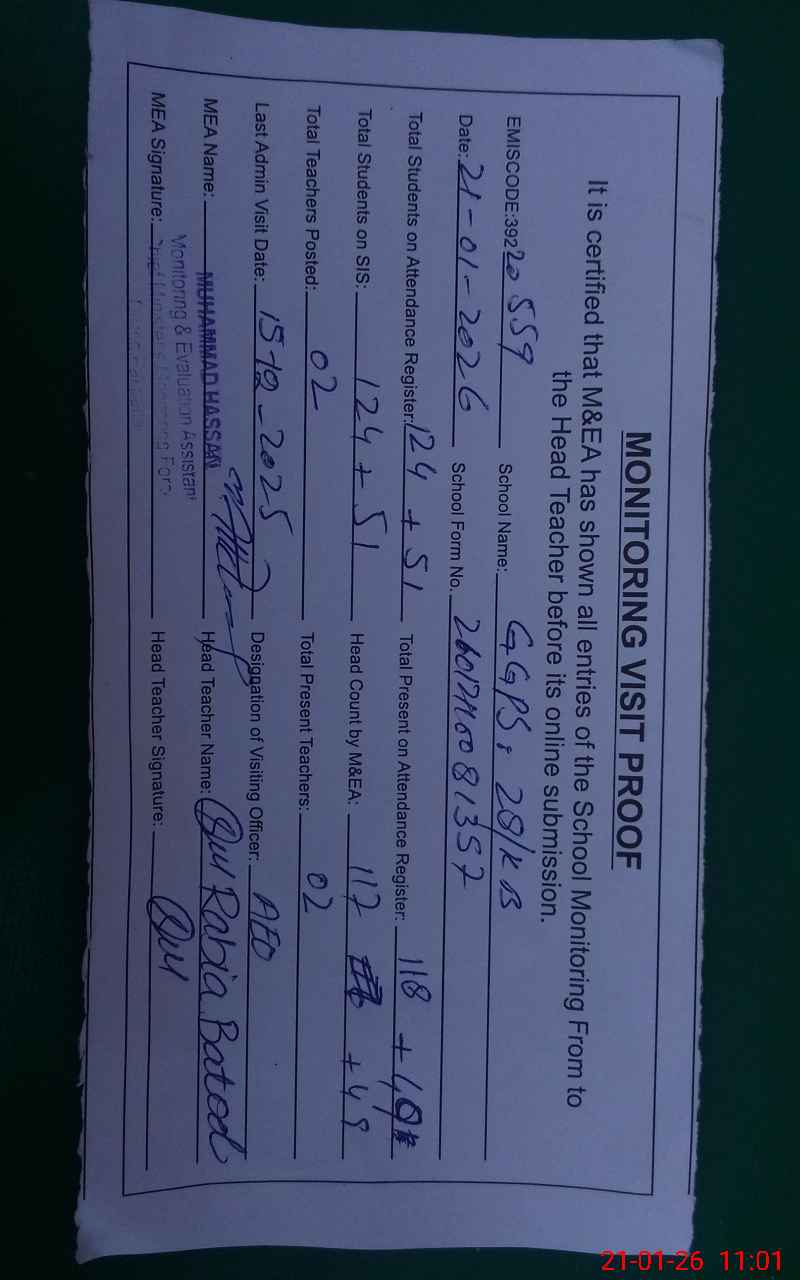 MONITORING VISIT PROOF
It is certified that M&EA has shown all entries of the School Monitoring From to
the Head Teacher before its online submission.
EMISCODE:39220559 School Name: GGPS, 28/KB
Date: 21-01-2026 School Form No.
Total Students on Attendance Register: 124 + 51 Total Present on Attendance Register: 118 + 49
Total Students on SIS: 124 + 51 Head Count by M&EA: 117 + 49
Total Teachers Posted: 02 Total Present Teachers: 02
Last Admin Visit Date: 15-12-2025 Designation of Visiting Officer: AEO
MEA Name: MUHAMMAD HASSAN Head Teacher Name: Rabia Batool
Monitoring & Evaluation Assistant
MEA Signature: Chief Minister's Monitoring Force Head Teacher Signature:
21-01-26 11:01